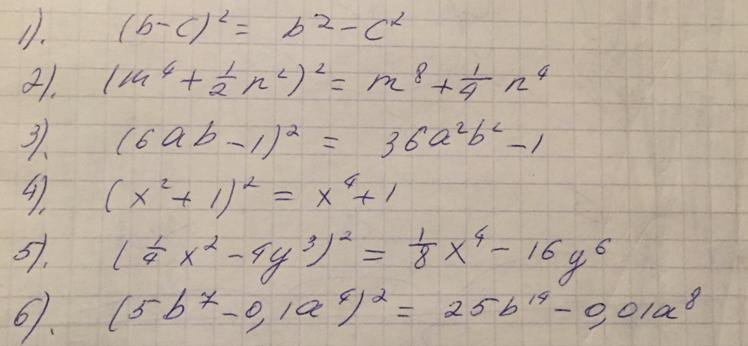 1). (b-c)² = b²-c²
2). (m⁴ + 1/2 n²)² = m⁸ + 1/4 n⁴
3). (6ab-1)² = 36a²b²-1
4). (x²+1)² = x⁴+1
5). (1/4 x² - 4y³)² = 1/8 x⁴ - 16y⁶
6). (5b⁷-0,1a⁴)² = 25b¹⁴-0,01a⁸